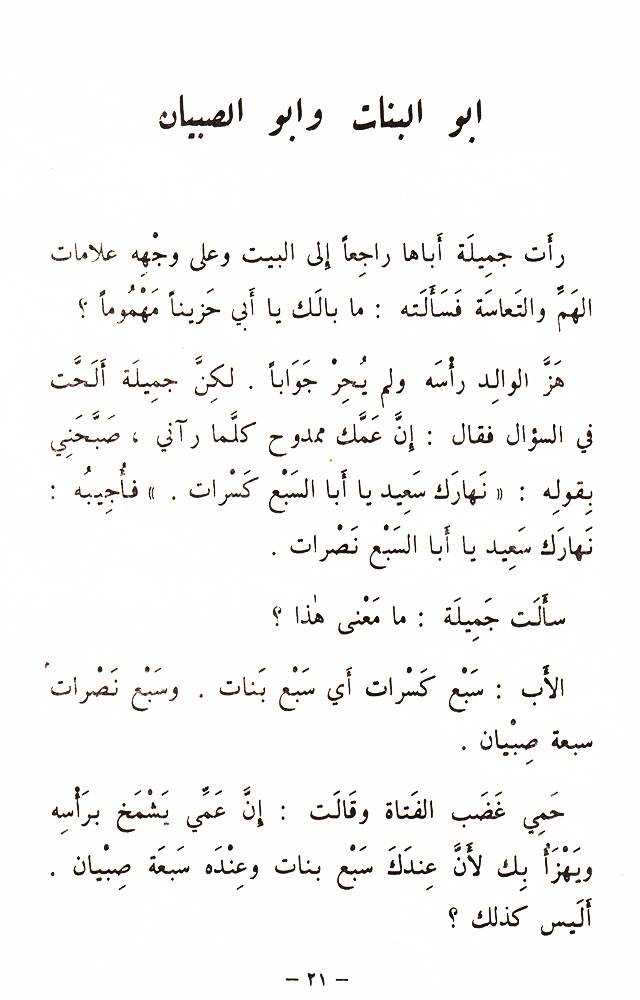 ابو البنات وابو الصبيان
رأَت جمِيلَة أَباها راجِعاً إِلى البيت وعلى وجْهِه علامات
الهَمِّ والتَعاسَة فَسَأَلَته : ما بالَك يا أَبي حَزيناً مَهْمُوماً ؟
هَزَّ الوالِد رأْسَه ولم يُحِرْ جَوَاباً . لكِنَّ جميلَة أَلَحَّت
في السؤال فقال : إِنَّ عَمَّك ممدوح كلَّما رآني ، صَبَّحَنِي
بِقولِه : « نَهارَك سَعِيد يا أَبا السَبْع كَسْرات . » فأُجِيبُه :
نَهارَك سَعِيد يا أَبا السَبْع نَصْرات .
سأَلَت جَمِيلَة : ما مَعْنى هٰذا ؟
الأَب : سَبْع كَسْرات أَي سَبْع بَنات . وسَبْع نَصْرات
سبعة صِبْيان .
حَمِي غَضَب الفَتاة وقَالَت : إِنَّ عَمِّي يَشْمَخ برَأْسِه
ويَهْزَأُ بِك لأَنَّ عِندَكَ سَبْع بنات وعِنْدَه سَبعَة صِبْيان .
أَلَيس كذلك ؟
– ٢١ –